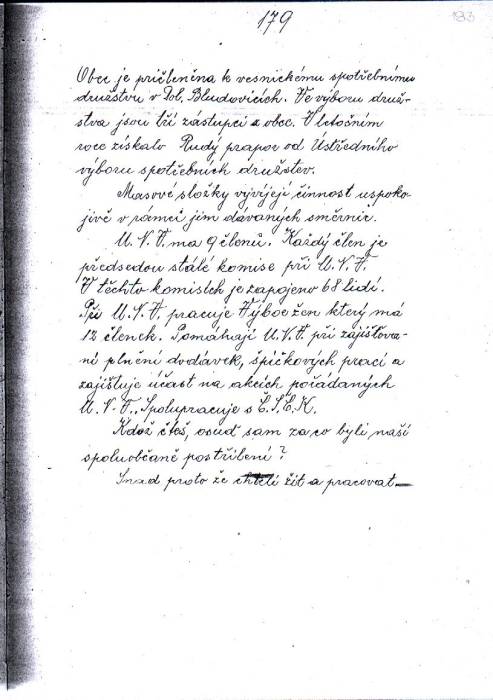 179
193
Obec je pričleněna k vesnickému spotřebnímu
družstvu v Dol. Bludovicích. Ve výboru druž-
stva jsou tří zástupci z obec. V letočním
roce získalo Rudý prapor od Ústředního
výboru spotřebních družstev.
Masové složky vyvíjejí činnost uspoko-
jivě v rámci jim dávaných směrnic.
M. N. V. ma 9 členů. Každý člen je
předsedou stálé komise při M. N. V.
V těchto komisích je zapojeno 68 lidí.
Při M. N. V. pracuje Výbor žen který má
12 členek. Pomáhají M. N. V. při zajišťova-
ní plnění dodávek, špičkových prací a
zajištuje účast na akcích pořádaných
M. N. V.. Spolupracuje s Č.S.Č.K.
Kdož čteš, osuď sam za co byli naší
spoluobčaně postřílení?
Snad proto že chtěli žit a pracovat